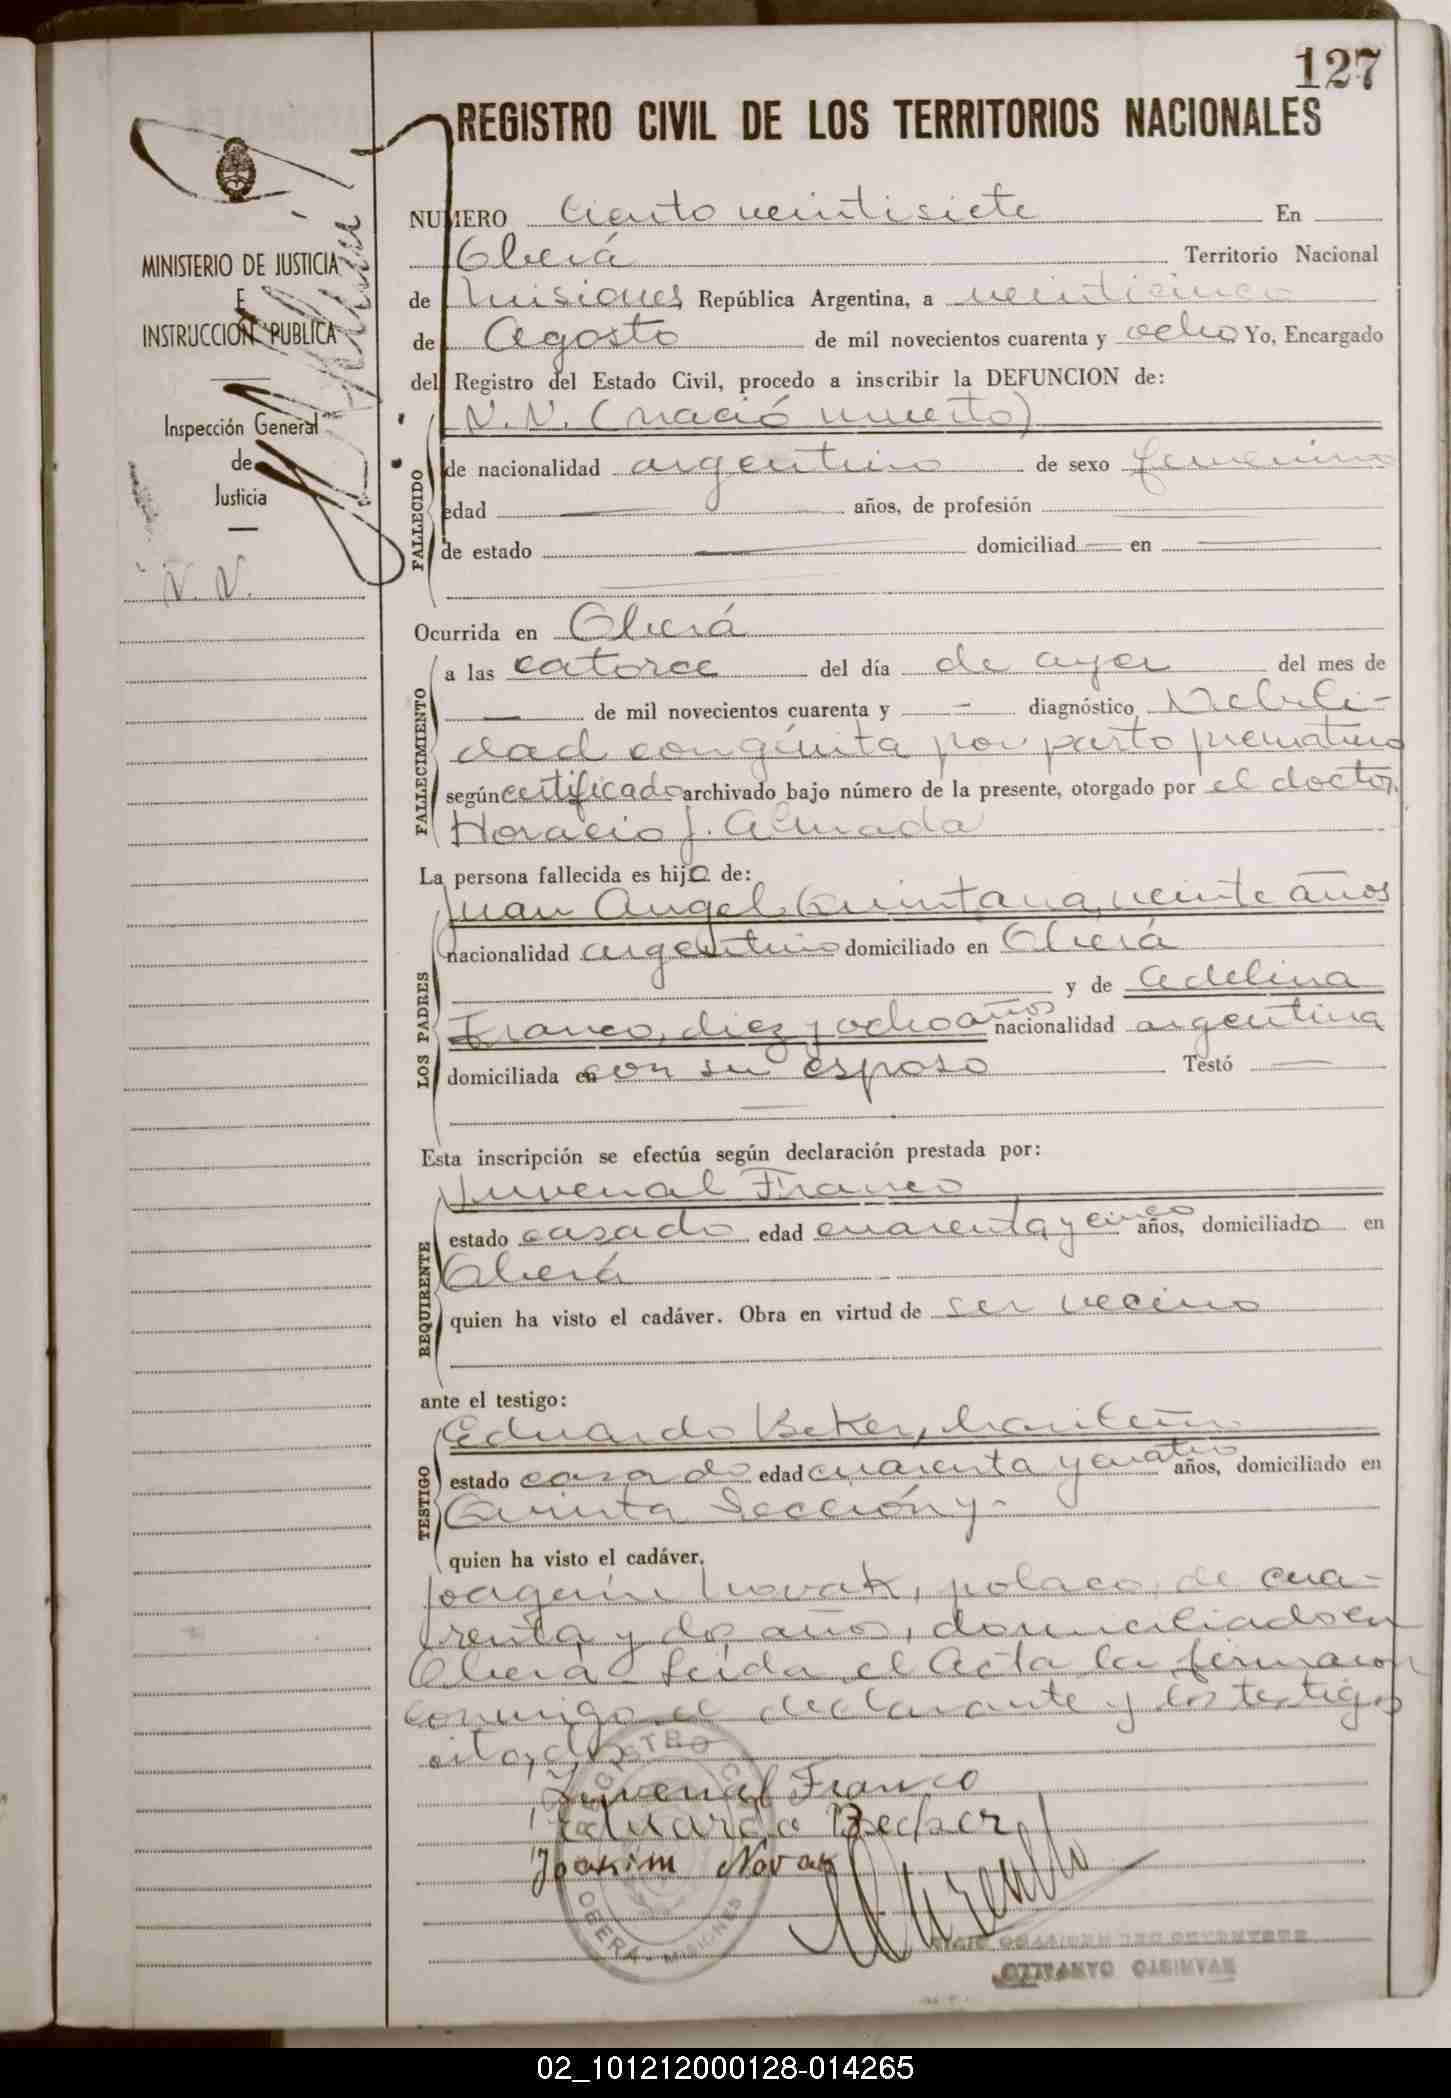 127
REGISTRO CIVIL DE LOS TERRITORIOS NACIONALES
MINISTERIO DE JUSTICIA
E
INSTRUCCION PUBLICA
Inspección General
de
Justicia
N. N.
NUMERO Ciento veintisiete En
Oberá Territorio Nacional
de Misiones República Argentina, a veinticinco
de Agosto de mil novecientos cuarenta y ocho Yo, Encargado
del Registro del Estado Civil, procedo a inscribir la DEFUNCION de:
N. N. (nació muerto)
FALLECIDO
de nacionalidad argentino de sexo femenino
edad — años, de profesión —
de estado — domiciliad — en —
Ocurrida en Oberá
FALLECIMIENTO
a las catorce del día de ayer del mes de
— de mil novecientos cuarenta y — diagnóstico Debili-
dad congénita por parto prematuro
según certificado archivado bajo número de la presente, otorgado por el doctor
Horacio J. Almada
La persona fallecida es hijo de:
LOS PADRES
Juan Angel Quintana, veinte años
nacionalidad argentino domiciliado en Oberá
y de Adelina
Franco, diez y ocho años nacionalidad argentina
domiciliada en con su esposo Testó —
Esta inscripción se efectúa según declaración prestada por:
REQUIRENTE
Juvenal Franco
estado casado edad cuarenta y cinco años, domiciliado en
Oberá
quien ha visto el cadáver. Obra en virtud de ser vecino
ante el testigo:
TESTIGO
Eduardo Beker, brasileño
estado casado edad cuarenta y cuatro años, domiciliado en
Quinta Sección y-
quien ha visto el cadáver.
Joaquín Novak, polaco, de cua-
renta y dos años, domiciliado en
Oberá Leída el Acta la firmaron
conmigo el declarante y los testigos
citados
Juvenal Franco
Eduardo Becker
Joakim Novak
REGISTRO CIVIL
OBERA - MISIONES
02_101212000128-014265